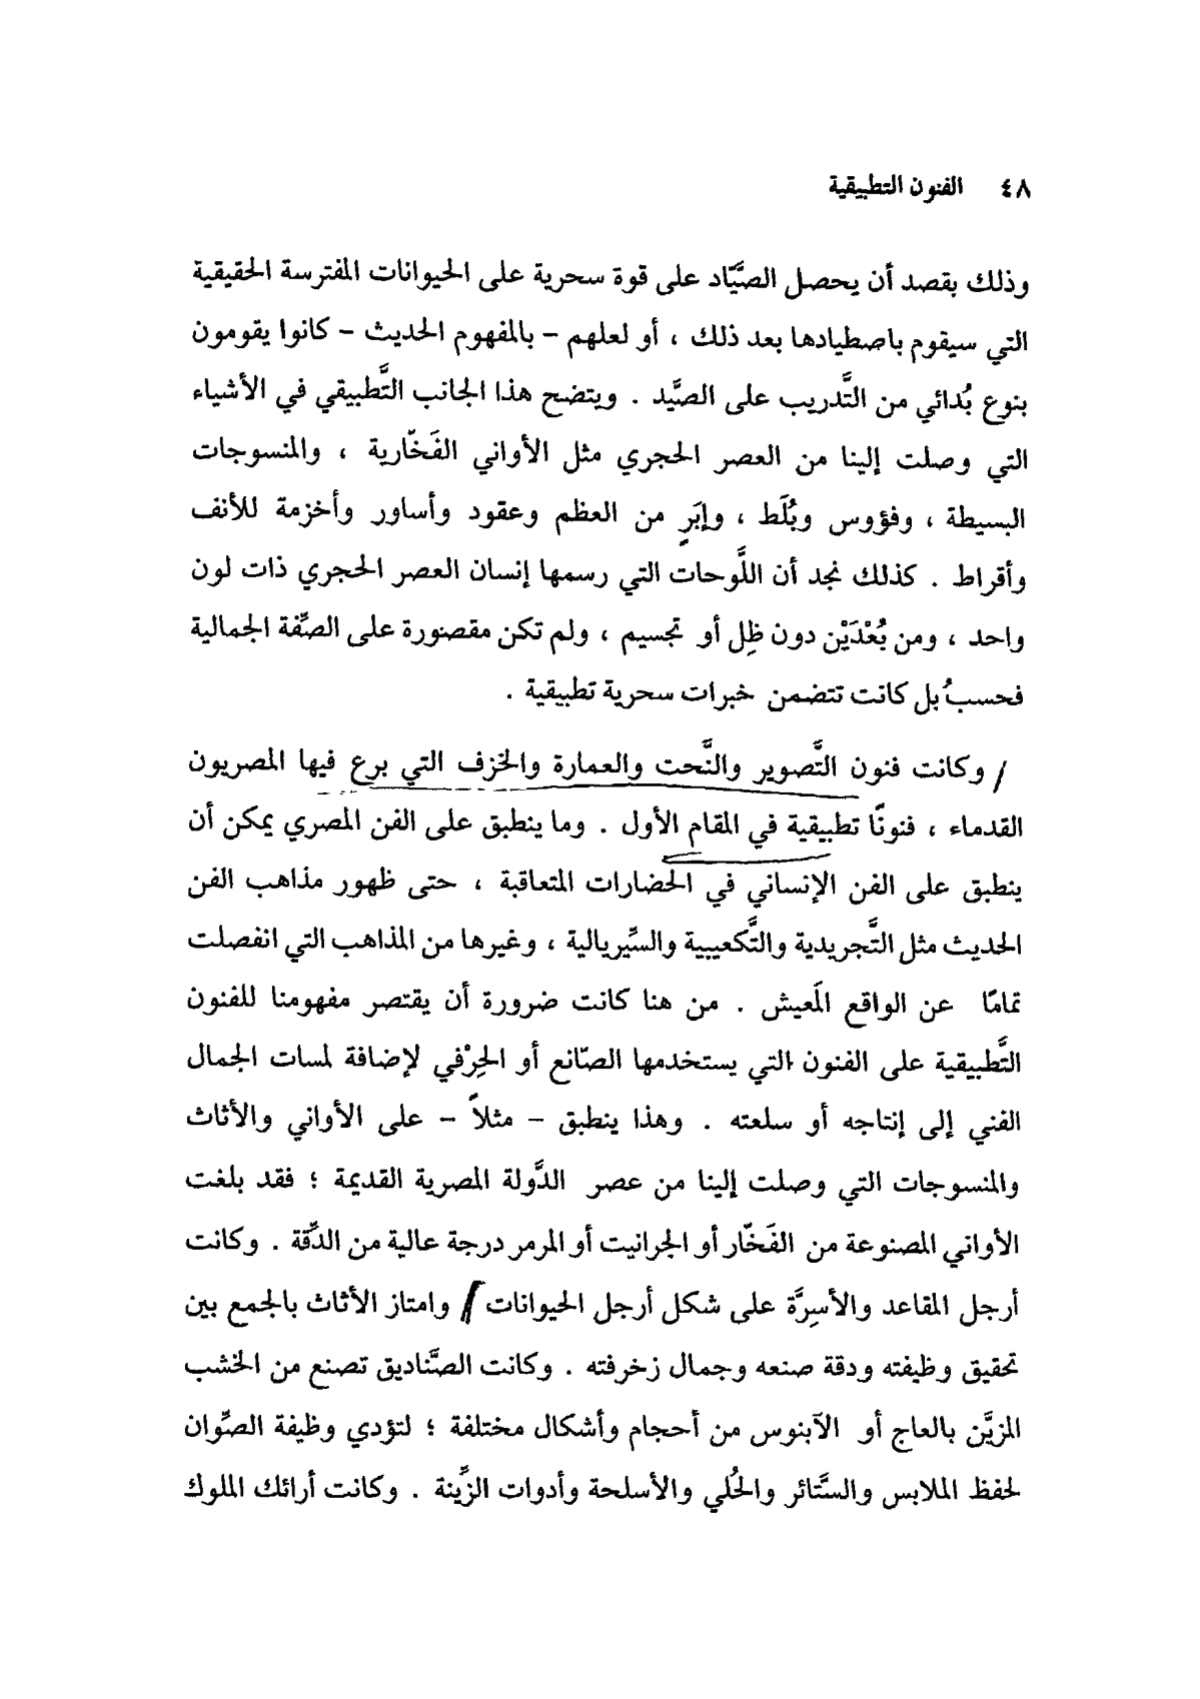 ٤٨ الفنون التطبيقية
وذلك بقصد أن يحصل الصَّيّاد على قوة سحرية على الحيوانات المفترسة الحقيقية
التي سيقوم باصطيادها بعد ذلك ، أو لعلهم – بالمفهوم الحديث – كانوا يقومون
بنوع بُدائي من التَّدريب على الصَّيد . ويتضح هذا الجانب التَّطبيقي في الأشياء
التي وصلت إلينا من العصر الحجري مثل الأواني الفَخّارية ، والمنسوجات
البسيطة ، وفؤوس وبُلَط ، وإبَرٍ من العظم وعقود وأساور وأخزمة للأنف
وأقراط . كذلك نجد أن اللَّوحات التي رسمها إنسان العصر الحجري ذات لون
واحد ، ومن بُعْدَيْن دون ظِل أو تجسيم ، ولم تكن مقصنورة على الصِّفة الجمالية
فحسبُ بل كانت تتضمن خبرات سحرية تطبيقية .
/ وكانت فنون التَّصوير والنَّحت والعمارة والخزف التي برع فيها المصريون
القدماء ، فنونًا تطبيقية في المقام الأول . وما ينطبق على الفن المصري يمكن أن
ينطبق على الفن الإنساني في الحضارات المتعاقبة ، حتى ظهور مذاهب الفن
الحديث مثل التَّجريدية والتَّكعيبية والسِّيريالية ، وغيرها من المذاهب التي انفصلت
تمامًا عن الواقع المَعيش . من هنا كانت ضرورة أن يقتصر مفهومنا للفنون
التَّطبيقية على الفنون التي يستخدمها الصّانع أو الحِرْفي لإضافة لمسات الجمال
الفني إلى إنتاجه أو سلعته . وهذا ينطبق – مثلاً – على الأواني والأثاث
والمنسوجات التي وصلت إلينا من عصر الدَّولة المصرية القديمة ؛ فقد بلغت
الأواني المصنوعة من الفَخّار أو الجرانيت أو المرمر درجة عالية من الدِّقة . وكانت
أرجل المقاعد والأسِرَّة على شكل أرجل الحيوانات / وامتاز الأثاث بالجمع بين
تحقيق وظيفته ودقة صنعه وجمال زخرفته . وكانت الصَّناديق تصنع من الخشب
المزيَّن بالعاج أو الآبنوس من أحجام وأشكال مختلفة ؛ لتؤدي وظيفة الصِّوان
لحفظ الملابس والسَّتائر والحُلي والأسلحة وأدوات الزِّينة . وكانت أرائك الملوك